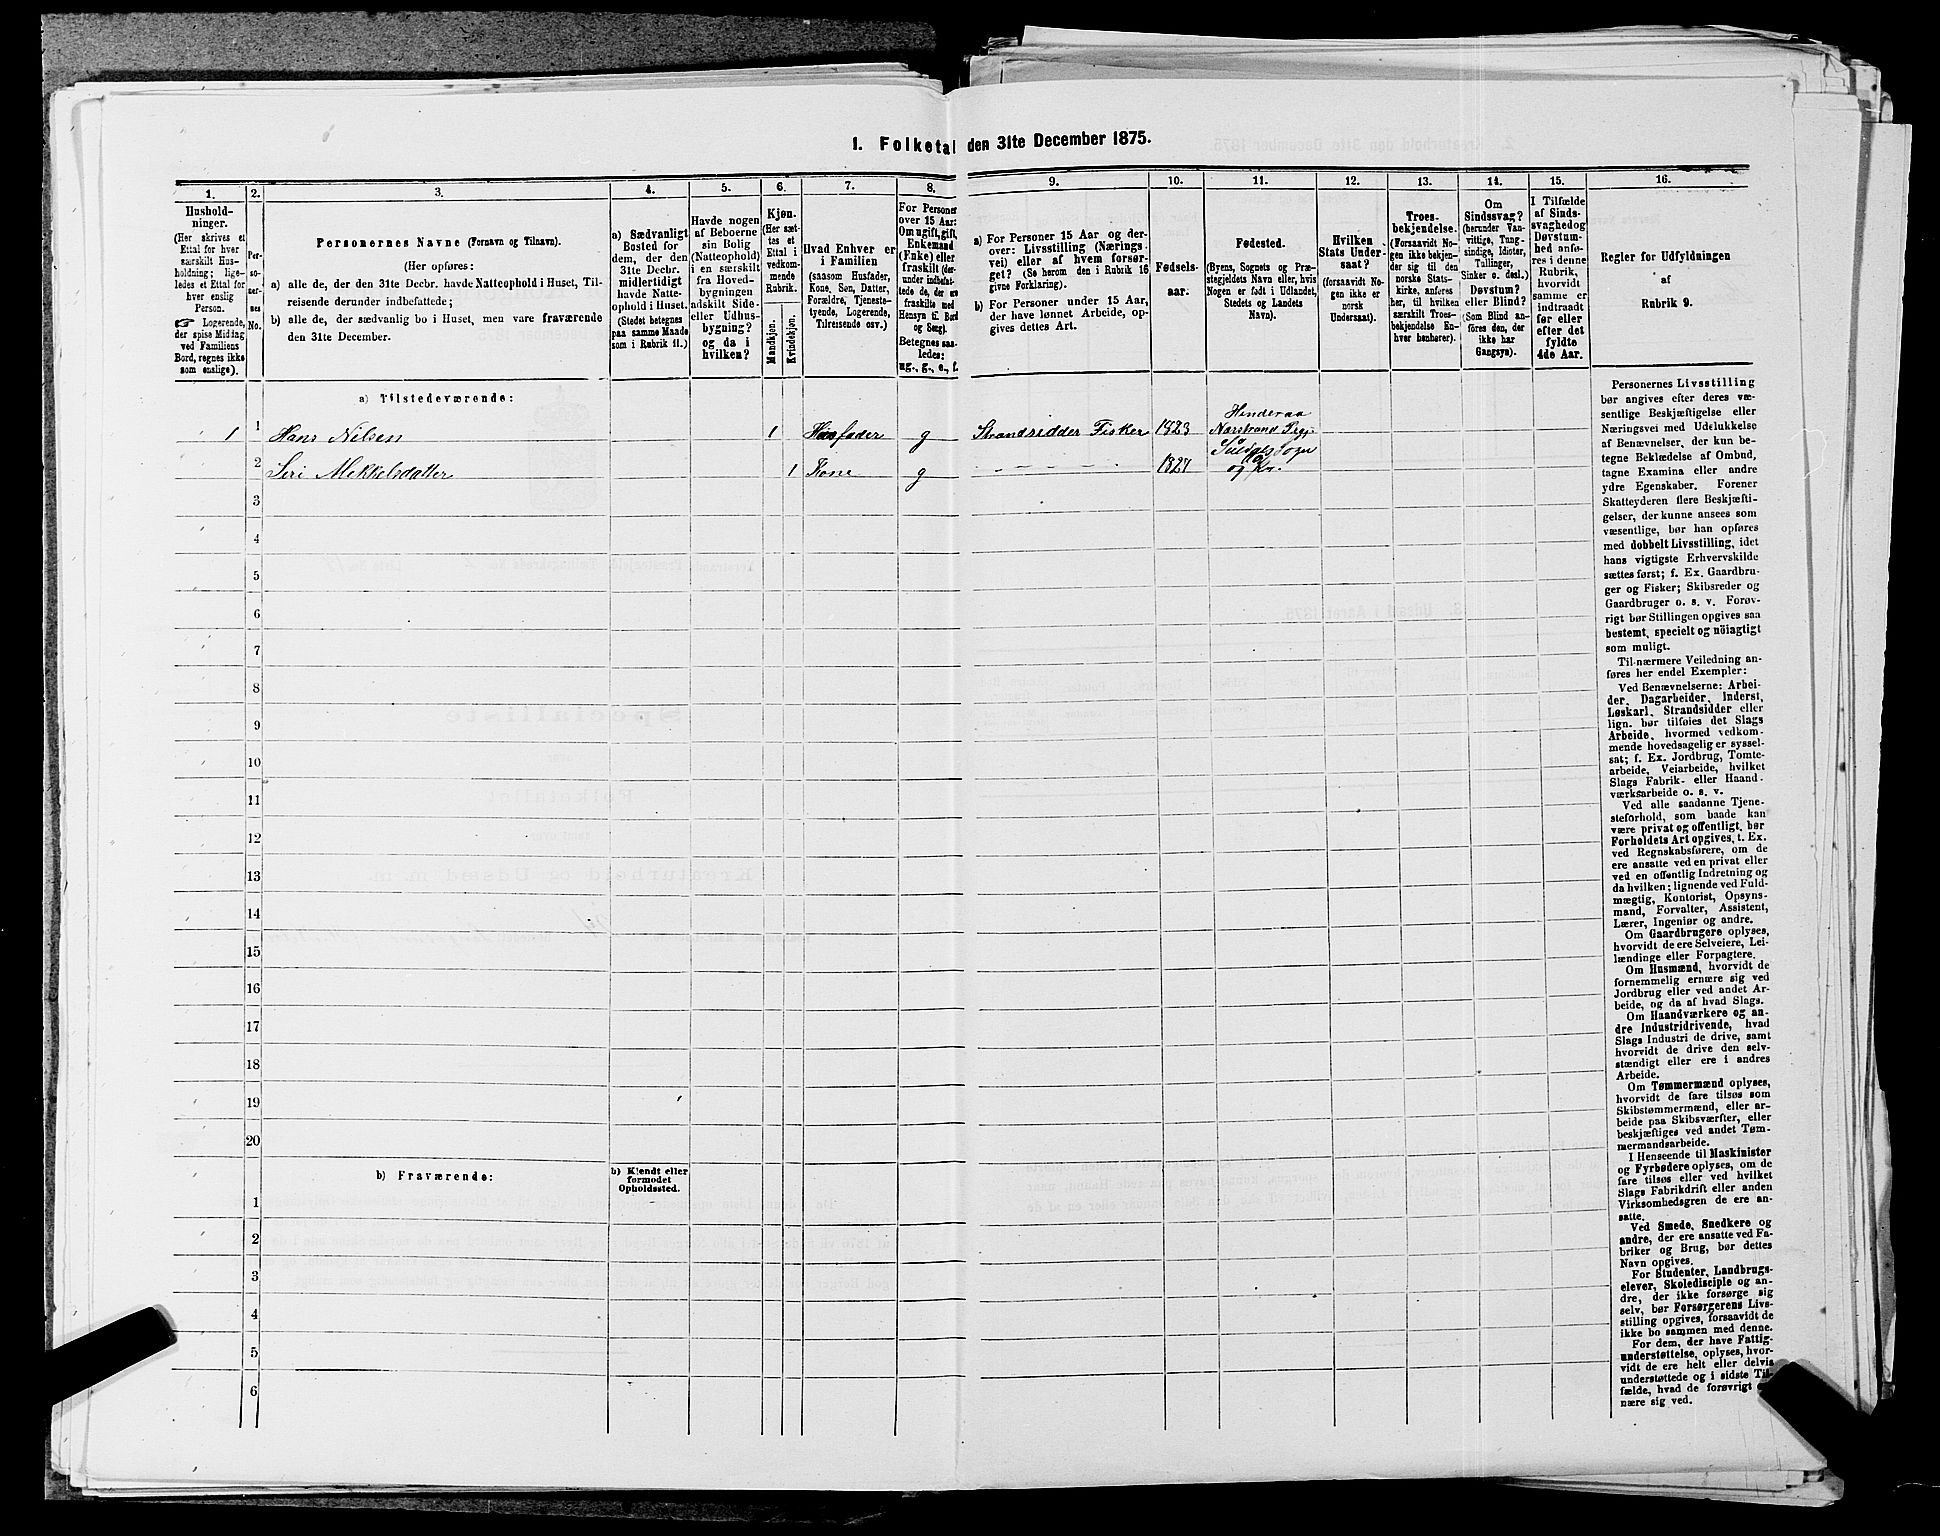 1. Folketal den 31te December 1875.
1.
2.
3.
4.
5.
6.
7.
8.
9.
10.
11.
12.
13.
14.
15.
16.
Husholdninger.
(Her skrives et
Ettal for hver
særskilt Husholdning;
ligeledes et Ettal for
hver enslig
Person.
☞ Logerende,
der spise Middag
ved Familiens
Bord, regnes ikke
som enslige).
Personernes No.
Personernes Navne (Fornavn og Tilnavn).
(Her opføres:
a) alle de, der den 31te Decbr. havde Natteophold i Huset, Tilreisende derunder indbefattede;
b) alle de, der sædvanlig bo i Huset, men vare fraværende
den 31te December.
a) Sædvanligt
Bosted for
dem, der den
31te Decbr.
midlertidigt
havde Natteophold i Huset.
(Stedet betegnes
paa samme Maade
som i Rubrik 11.)
Havde nogen
af Beboerne
sin Bolig
(Natteophold)
i en særskilt
fra Hovedbygningen
adskilt Side-
eller Udhusbygning?
og da i
hvilken?
Kjøn.
(Her sættes et
Ettal i
vedkommende
Rubrik.
Mandkjøn.
Kvindekjøn.
Hvad Enhver er
i Familien
(saasom Husfader,
Kone, Søn, Datter,
Forældre, Tjenestetyende, Logerende,
Tilreisende osv.)
For Personer
over 15 Aar:
Om ugift, gift,
Enkemand
(Enke) eller
fraskilt
Betegnes saaledes:
ug., g., e., f.
a) For Personer 15 Aar og derover: Livsstilling (Næringsvei) eller af hvem forsørget? (Se herom den i Rubrik 16
givne Forklaring).
b) For Personer under 15 Aar,
der have lønnet Arbeide, opgives dettes Art.
Fødselsaar.
Fødested.
(Byens, Sognets og Præstegjeldets Navn eller, hvis
Nogen er født i Udlandet,
Stedets og Landets
Navn).
Hvilken
Stats Undersaat?
(forsaavidt Nogen ikke er
norsk
Undersaat).
Troesbekjendelse.
(Forsaavidt Nogen ikke bekjender sig til den
norske Statskirke, anføres
her, til hvilken
særskilt Troesbekjendelse Enhver henhører).
Om
Sindssvag?
(herunder Vanvittige, Tungsindige, Idioter,
Tullinger,
Sinker o. desl.)
Døvstum?
eller Blind?
(Som Blind anføres den, der
ikke har
Gangsyn).
I Tilfælde
af Sindssvaghed og
Døvstumhed anføres i denne
Rubrik,
hvorvidt
samme er
indtraadt
før eller
efter det
fyldte
4de Aar.
Regler for Udfyldningen
af
Rubrik 9.
a) Tilstedeværende:
1
1 Hans Nilsen 1 Husfader g Strandsidder Fisker 1823 Hinderaa
Nærstrand Prgj.
2 Siri Mekkelsdatter 1 Kone g - - - - - - 1827
3
4
5
6
7
8
9
10
11
12
13
14
15
16
17
18
19
20
b) Fraværende:
b) Kjendt eller
formodet
Opholdssted.
1
2
3
4
5
6
Personernes Livsstilling
bør angives efter deres væsentlige Beskjæftigelse eller
Næringsvei med Udelukkelse
af Benævnelser, der kun betegne Beklædelse af Ombud,
tagne Examina eller andre
ydre Egenskaber. Forener
Skatteyderen flere Beskjæftigelser, der kunne ansees som
væsentlige, bør han opføres
med dobbelt Livsstilling, idet
hans vigtigste Erhvervskilde
sættes først; f. Ex. Gaardbruger og Fisker; Skibsreder og
Gaardbruger o. s. v. Forøvrigt bør Stillingen opgives saa
bestemt, specielt og nöiagtigt
som muligt.
Til nærmere Veiledning anføres her endel Exempler:
Ved Benævnelserne: Arbeider, Dagarbeider, Inderst,
Løskarl, Strandsidder eller
lign. bør tilføies det Slags
Arbeide, hvormed vedkommende hovedsagelig er sysselsat; f. Ex. Jordbrug, Tomtearbeide, Veiarbeide, hvilket
Slags Fabrik- eller Haandværksarbeide o. s. v.
Ved alle saadanne Tjenesteforhold, som baade kan
være privat og offentligt, bør
Forholdets Art opgives, t. Ex.
ved Regnskabsførere, om de
ere ansatte ved en privat eller
ved en offentlig Indretning og
da hvilken; lignende ved Fuldmægtig, Kontorist, Opsynsmand, Forvalter, Assistent,
Lærer, Ingeniør og andre.
Om Gaardbrugere oplyses,
hvorvidt de ere Selveiere, Leilændinge eller Forpagtere.
Om Husmænd, hvorvidt de
fornemmelig ernære sig ved
Jordbrug eller ved andet Arbeide, og da af hvad Slags.
Om Haandværkere og andre Industridrivende, hvad
Slags Industri de drive, samt
hvorvidt de drive den selvstændigt eller ere i andres
Arbeide.
Om Tømmermænd oplyses,
hvorvidt de fare tilsøs som
Skibstømmermænd, eller arbeide paa Skibsværfter, eller
beskjæftiges ved andet Tømmermandsarbeide.
I Henseende til Maskinister
og Fyrbødere oplyses, om de
fare tilsøs eller ved hvilket
Slags Fabrikdrift eller anden
Virksomhedsgren de ere ansatte.
Ved Smede, Snedkere og
andre, der ere ansatte ved Fabriker og Brug, bør dettes
Navn opgives.
For Studenter, Landbrugselever, Skoledisciple og andre, der ikke forsørge sig
selv, bør Forsørgerens Livsstilling opgives, forsaavidt de
ikke bo sammen med denne.
For dem, der have Fattigunderstøttelse, oplyses, hvorvidt de ere helt eller delvis
understøttede og i sidste Tilfælde, hvad de forøvrigt
nære sig ved.